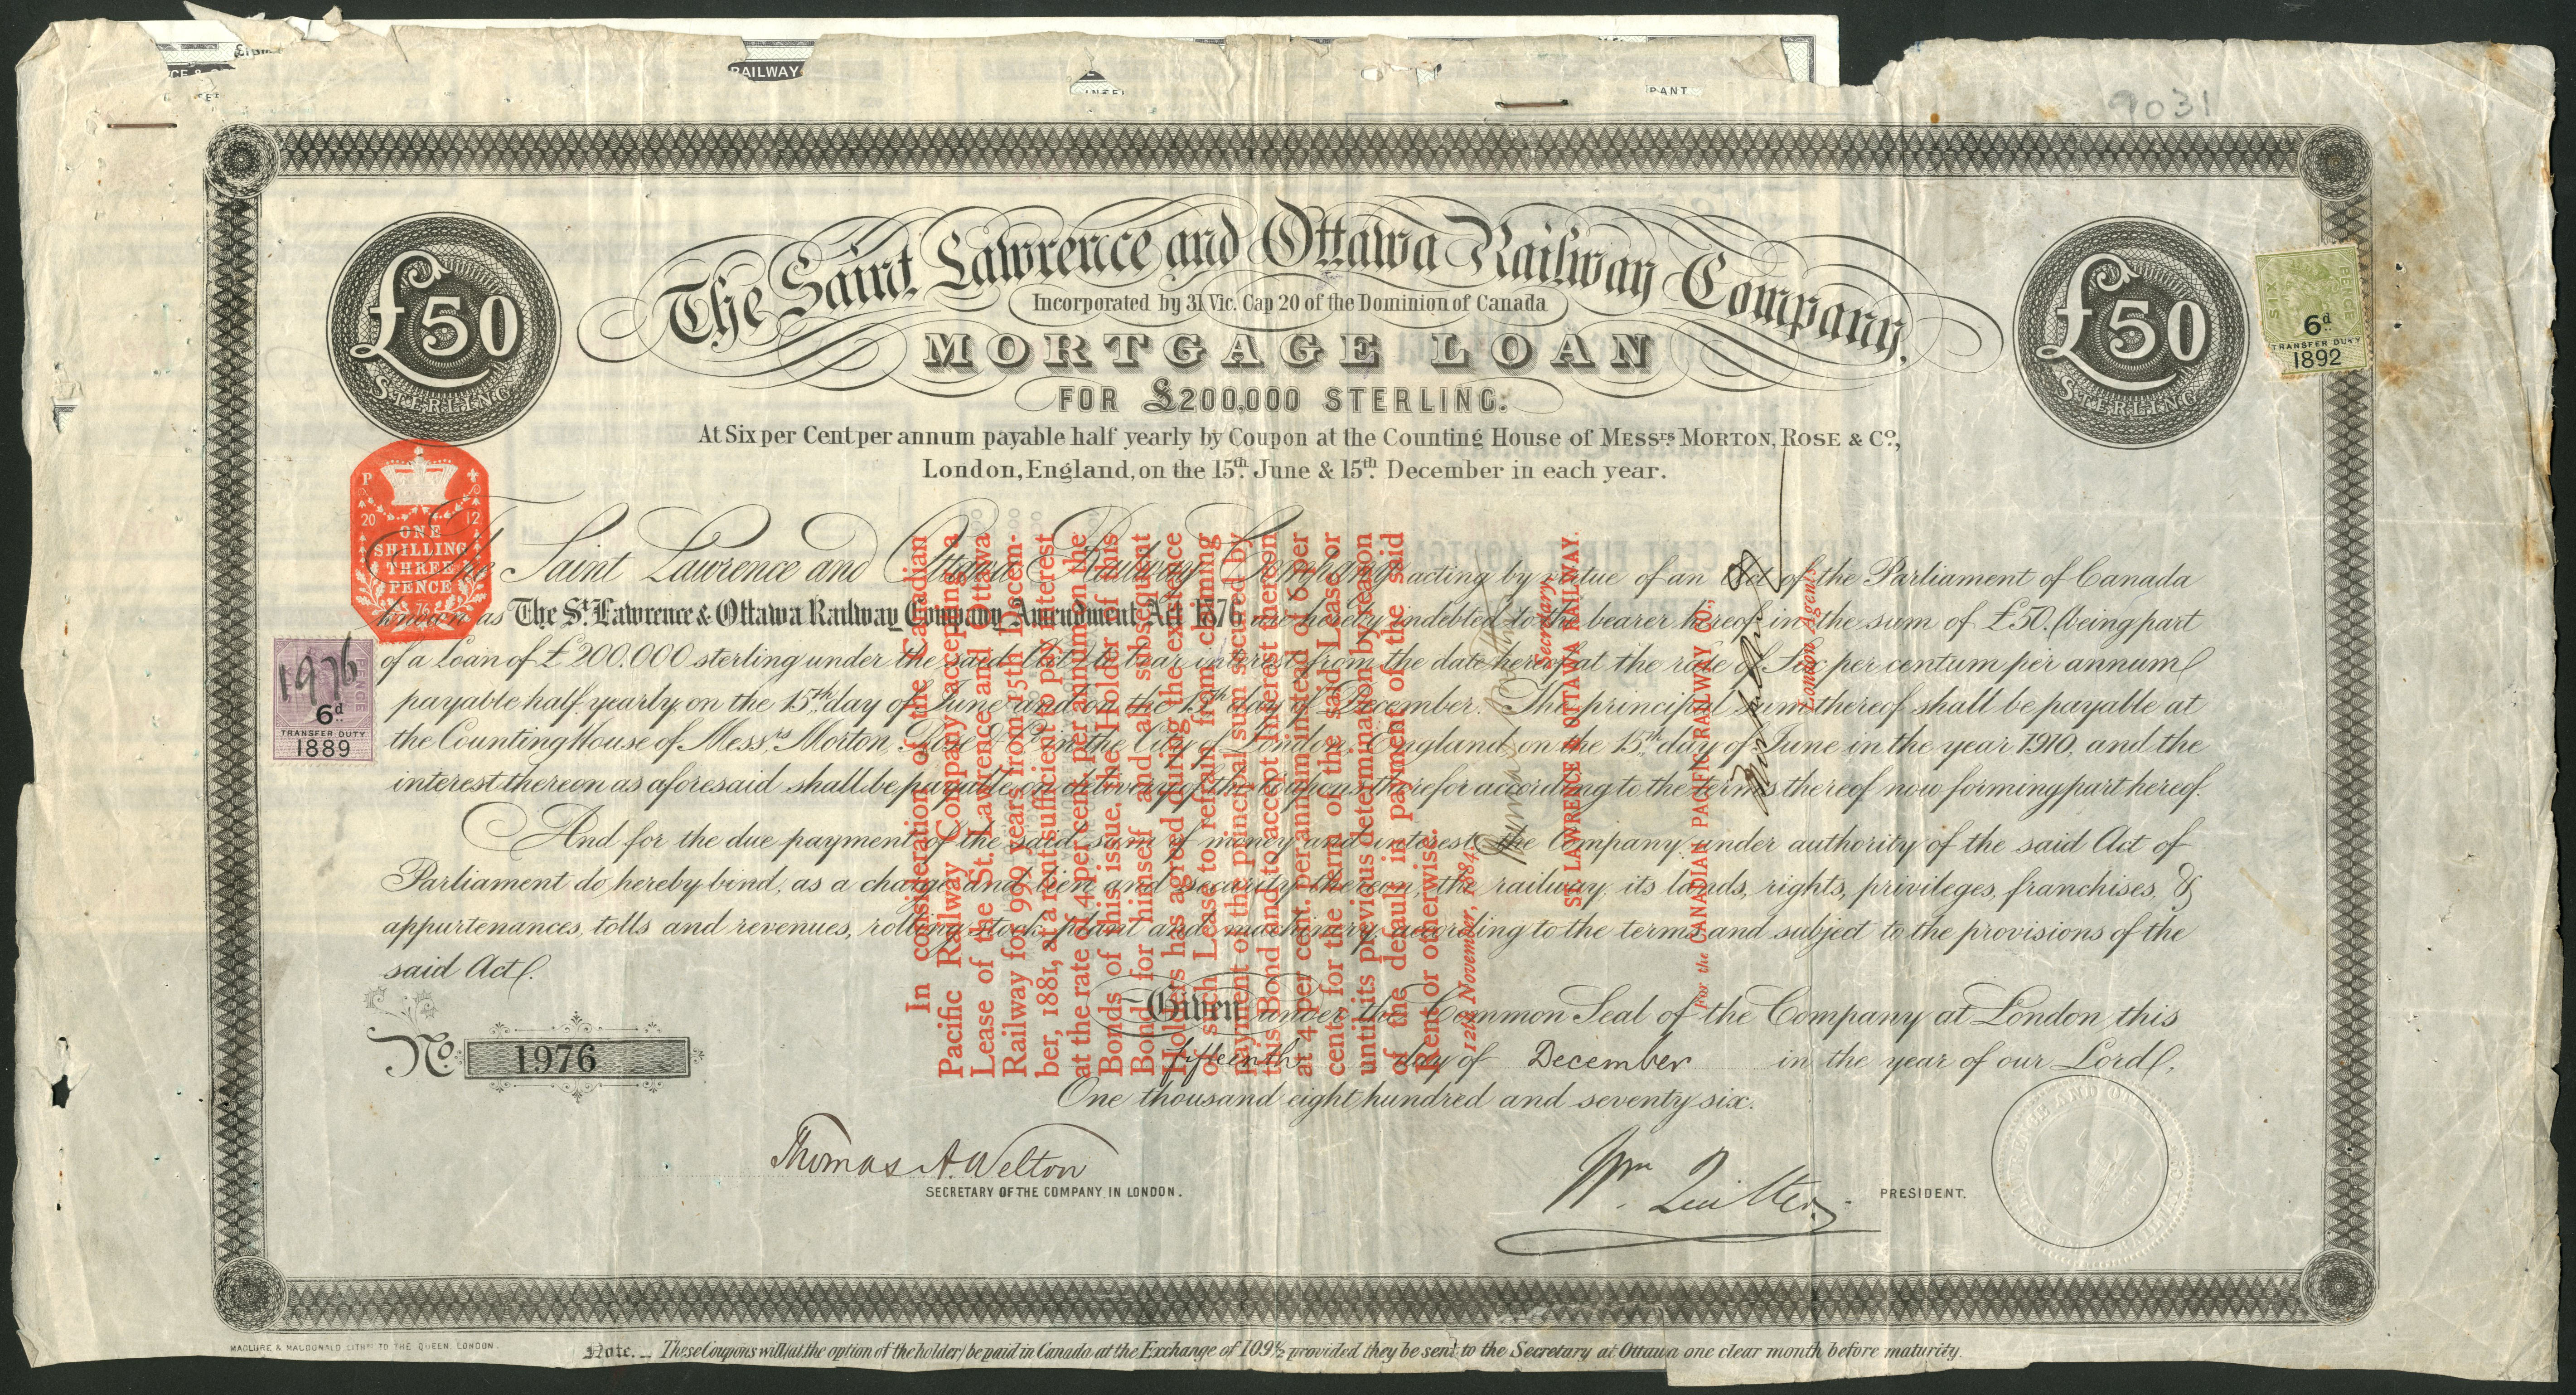 RAILWAY
PANT
9031
The Saint Lawrence and Ottawa Railway Company.
Incorporated by 31 Vic. Cap 20 of the Dominion of Canada
MORTGAGE LOAN
FOR £200,000 STERLING.
£50
STERLING
£50
STERLING
At Six per Cent per annum payable half yearly by Coupon at the Counting House of MESSrs. MORTON, ROSE & Co.,
London, England, on the 15th. June & 15th. December in each year.
SIX PENCE
6d
TRANSFER DUTY
1892
P
20 12
ONE
SHILLING
THREE
PENCE
76
1976
PENCE
6d
TRANSFER DUTY
1889
The Saint Lawrence and Ottawa Railway Company acting by virtue of an Act of the Parliament of Canada
known as The St. Lawrence & Ottawa Railway Company Amendment Act 1876 are hereby indebted to the bearer hereof in the sum of £50. (being part
of a Loan of £200.000 sterling under the said Act) to bear interest from the date hereof at the rate of Six per centum per annum
payable half yearly on the 15th day of June and on the 15th day of December. The principal sum thereof shall be payable at
the Counting House of Messrs. Morton, Rose & Co in the City of London England on the 15th day of June in the year 1910, and the
interest thereon as aforesaid shall be payable on delivery of the coupons therefor according to the terms thereof now forming part hereof.
And for the due payment of the said sum of money and interest, the Company, under authority of the said Act of
Parliament do hereby bind, as a charge and lien and security thereon, the railway, its lands, rights, privileges, franchises, &
appurtenances, tolls and revenues, rolling stock, plant and machinery, according to the terms and subject to the provisions of the
said Act.
Given under the Common Seal of the Company at London this
fifteenth day of December in the year of our Lord,
One thousand eight hundred and seventy six.
No. 1976
Thomas A. Welton
SECRETARY OF THE COMPANY IN LONDON.
Wm. Quilter
PRESIDENT.
In consideration of the Canadian
Pacific Railway Company accepting a
Lease of the St. Lawrence and Ottawa
Railway for 999 years from 15th Decem-
ber, 1881, at a rent sufficient to pay interest
at the rate of 4 per cent. per annum on the
Bonds of this issue, the Holder of this
Bond for himself and all subsequent
Holders has agreed during the existence
of such Lease to refrain from claiming
payment of the principal sum secured by
this Bond and to accept Interest thereon
at 4 per cent. per annum instead of 6 per
cent. for the term of the said Lease or
until its previous determination by reason
of the default in payment of the said
Rent or otherwise.
12th November, 1884.
Secretary.
ST. LAWRENCE & OTTAWA RAILWAY.
For the CANADIAN PACIFIC RAILWAY CO.,
London Agents
MACLURE & MACDONALD LITHRS TO THE QUEEN. LONDON.
Note. These Coupons will (at the option of the holder) be paid in Canada at the Exchange of 109½ provided they be sent to the Secretary at Ottawa one clear month before maturity.